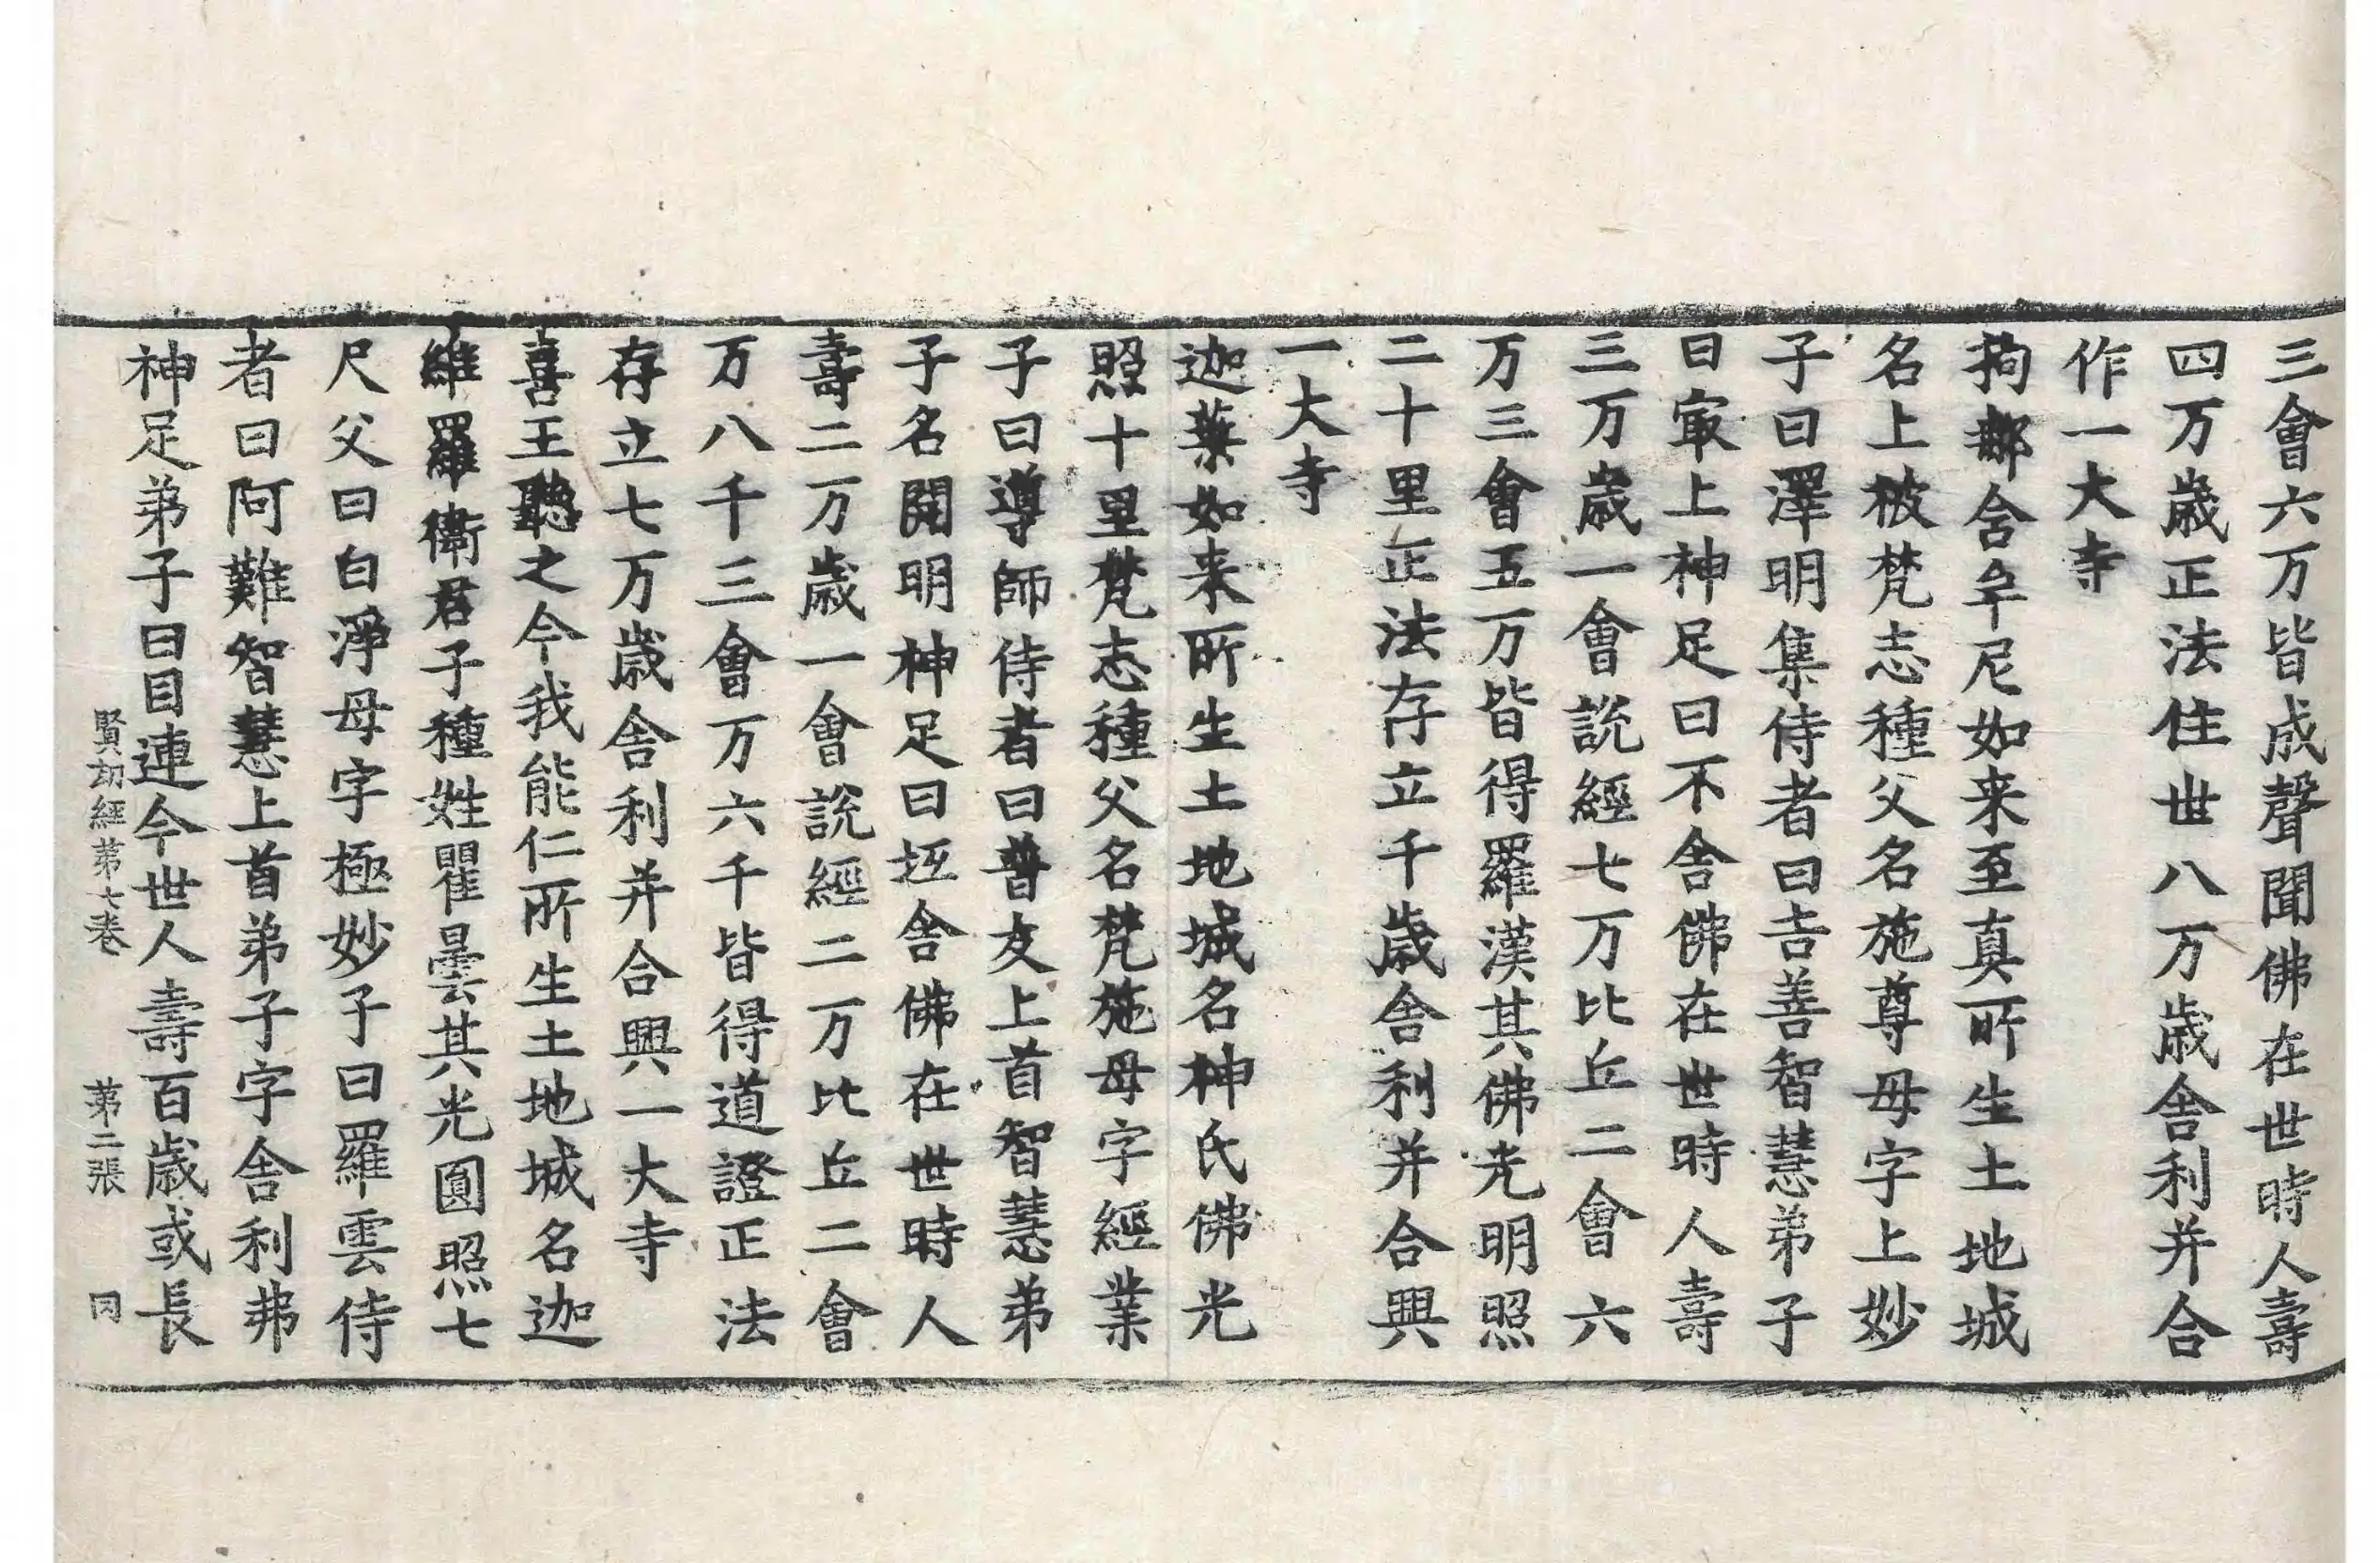 三會六万皆成聲聞佛在世時人壽
四万歲正法住世八万歲舍利并合
作一大寺
拘郍舍牟尼如来至真所生土地城
名上被梵志種父名施尊母字上妙
子曰澤明集侍者曰吉善智慧弟子
曰㝡上神足曰不舍佛在世時人壽
三万歲一會說經七万比丘二會六
万三會五万皆得羅漢其佛光明照
二十里正法存立千歲舍利并合興
一大寺
迦葉如来所生土地城名神氏佛光
照十里梵志種父名梵施母字經業
子曰導師侍者曰普友上首智慧弟
子名開明神足曰拯舍佛在世時人
壽二万歲一會說經二万比丘二會
万八千三會万六千皆得道證正法
存立七万歲舍利并合興一大寺
喜王聽之今我能仁所生土地城名迦
維羅衛君子種姓瞿曇其光圓照七
尺父曰白淨母字極妙子曰羅雲侍
者曰阿難智慧上首弟子字舍利弗
神足弟子曰目連今世人壽百歲或長
賢劫經第七卷 第二張 同